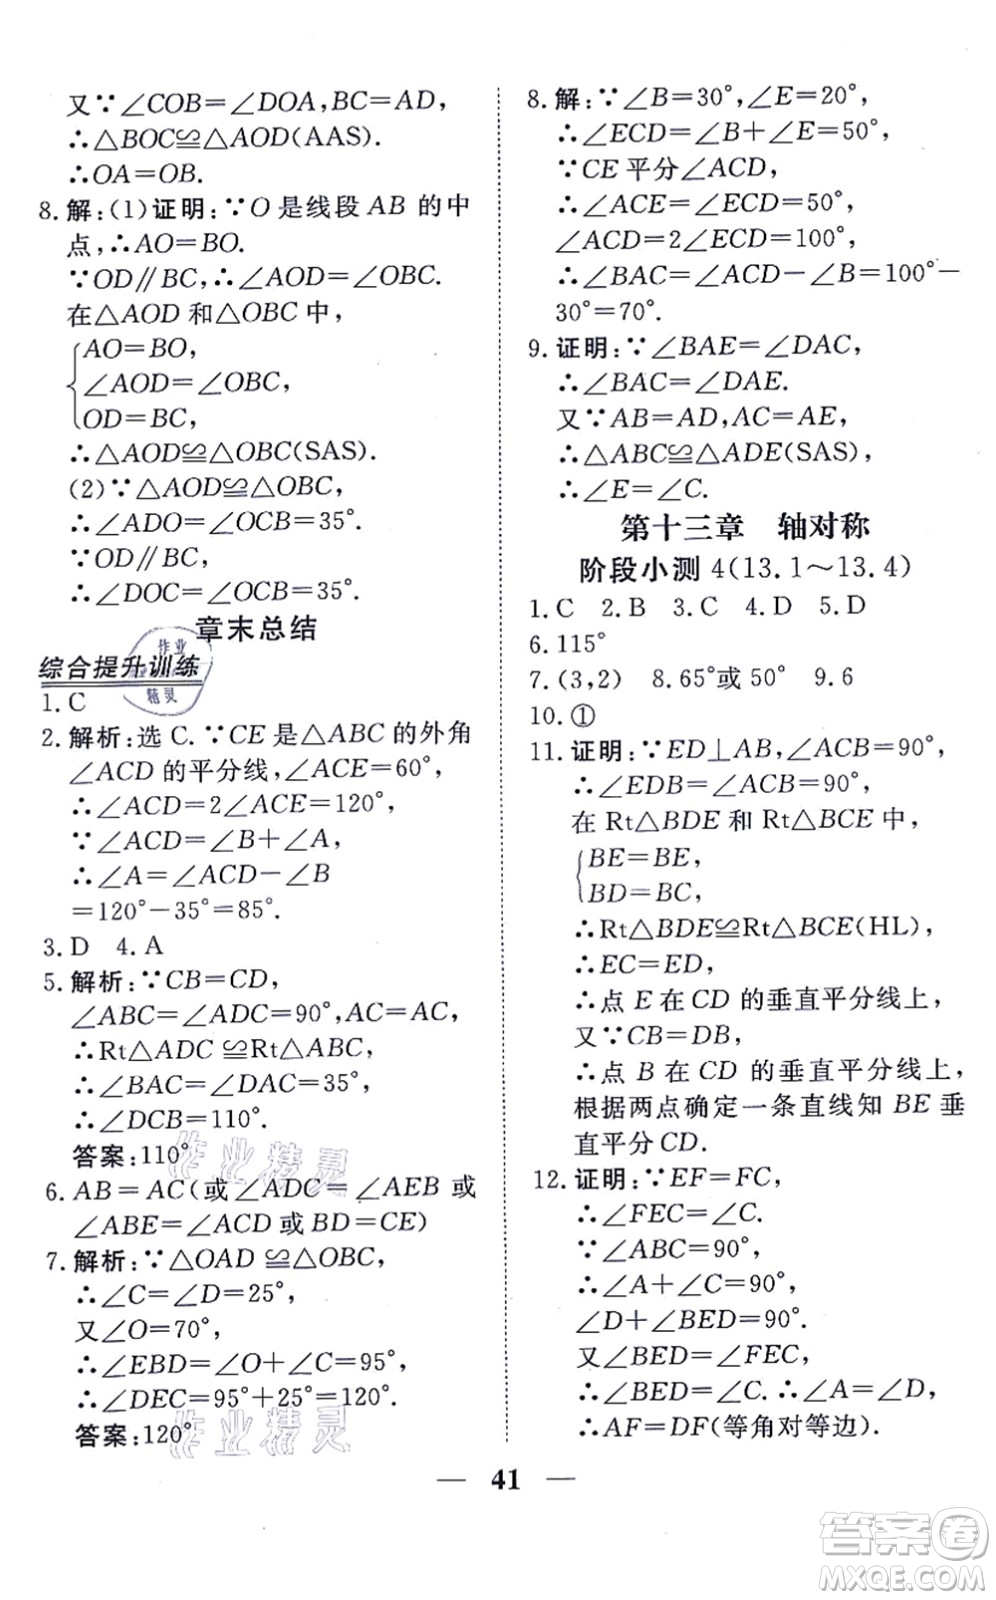 又∵∠COB=∠DOA,BC=AD,
∴△BOC≌△AOD(AAS).
∴OA=OB.
8.解:(1)证明:∵O 是线段 AB 的中
点,∴AO=BO.
∵OD∥BC,∴∠AOD=∠OBC.
在△AOD 和△OBC 中,
AO=BO,
∠AOD=∠OBC,
OD=BC,
∴△AOD≌△OBC(SAS).
(2)∵△AOD≌△OBC,
∴∠ADO=∠OCB=35°.
∵OD∥BC,
∴∠DOC=∠OCB=35°.
章末总结
综合提升训练
1.C
2.解析:选 C.∵CE 是△ABC 的外角
∠ACD 的平分线,∠ACE=60°,
∴∠ACD=2∠ACE=120°,
∵∠ACD=∠B+∠A,
∴∠A=∠ACD-∠B
=120°-35°=85°.
3.D 4.A
5.解析:∵CB=CD,
∠ABC=∠ADC=90°,AC=AC,
∴Rt△ADC ≌Rt△ABC,
∴∠BAC=∠DAC=35°,
∴∠DCB=110°.
答案:110°
6.AB=AC(或∠ADC=∠AEB 或
∠ABE=∠ACD 或 BD=CE)
7.解析:∵△OAD ≌△OBC,
∴∠C=∠D=25°,
又∠O=70°,
∴∠EBD=∠O+∠C=95°,
∴∠DEC=95°+25°=120°.
答案:120°
8.解:∵∠B=30°,∠E=20°,
∴∠ECD=∠B+∠E=50°,
∵CE 平分∠ACD,
∴∠ACE=∠ECD=50°,
∠ACD=2∠ECD=100°,
∴∠BAC=∠ACD-∠B=100°-
30°=70°.
9.证明:∵∠BAE=∠DAC,
∴∠BAC=∠DAE.
又∵AB=AD,AC=AE,
∴△ABC≌△ADE(SAS).
∴∠E=∠C.
第十三章 轴对称
阶段小测 4(13.1～13.4)
1.C 2.B 3.C 4.D 5.D
6.115°
7.(3,2) 8.65°或 50° 9.6
10.①
11.证明:∵ED⊥AB,∠ACB=90°,
∴∠EDB=∠ACB=90°,
在 Rt△BDE 和 Rt△BCE 中,
BE=BE,
BD=BC,
∴Rt△BDE≌Rt△BCE(HL),
∴EC=ED,
∴点 E 在 CD 的垂直平分线上,
又∵CB=DB,
∴点 B 在 CD 的垂直平分线上,
根据两点确定一条直线知 BE 垂
直平分 CD.
12.证明:∵EF=FC,
∴∠FEC=∠C.
∵∠ABC=90°,
∴∠A+∠C=90°,
∠D+∠BED=90°.
又∠BED=∠FEC,
∴∠BED=∠C.∴∠A=∠D,
∴AF=DF(等角对等边).
— 41 —
作业
精灵
作业精灵
作业精灵
答案卷
MXQE.COM